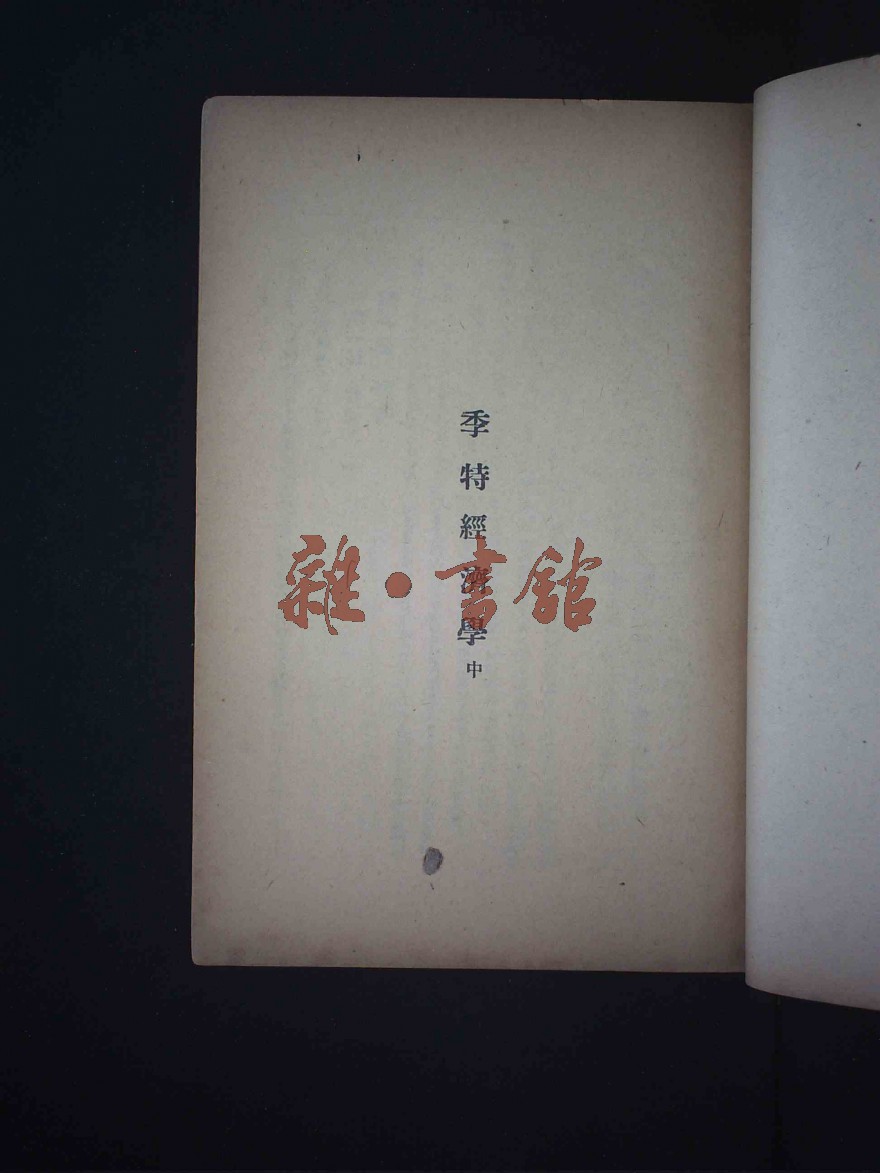 季特經濟學
中
雜·書館